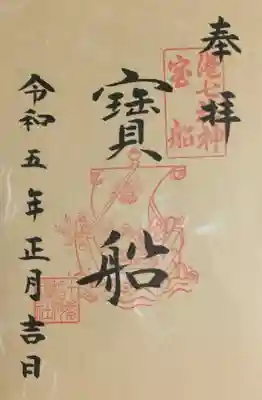 奉拝
七神
宝船
寶船
令和五年正月吉日